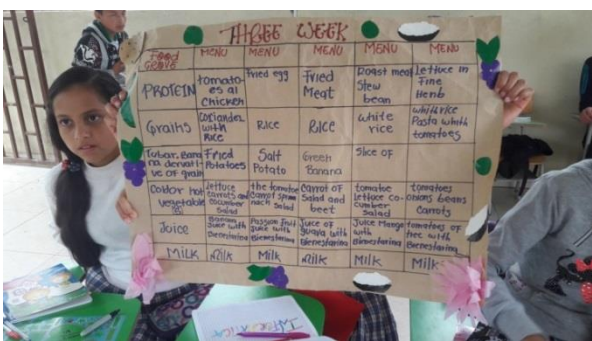 THREE WEEK
FOOD GROUP
MENU
MENU
MENU
MENU
MENU
PROTEIN
tomatoes al chicken
Fried egg
Fried Meat
Roast meat Stew bean
Lettuce in Fine Herb
Grains
Coriander with Rice
Rice
Rice
white rice
white rice Pasta whith tomatoes
Tubar. Bana na derivati ve of grain
Fried Potatoes
Salt Potato
Green Banana
Slice of
Color hot vegetable
lettuce carrots and cocumber Salad
the tomatoe Carrot spinach salad
Carrot of Salad and beet
tomatoe lettuce cocumber Salad
tomatoes onions beans Carrots
Juice
Banana Juice with Bienestarina
Passion Fruit Juice with Bienestarina
Juice of guava with Bienestarina
Juice Mango with Bienestarina
tomatoes of tree with Bienestarina
MILK
Milk
Milk
Milk
Milk
Milk
INFORMATICA